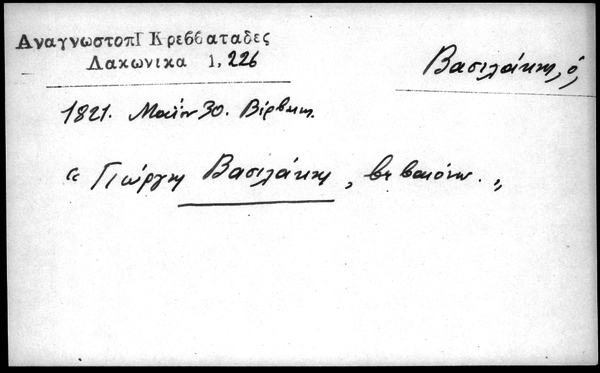 ΑναγνωστοπΓ Κρεββαταδες
Λακωνικα 1, 226
Βασιλάκης, ὁ,
1821. Μαΐου 30. Βέρβενα.
“ Γιώργης Βασιλάκης, βεβαιόνω. „